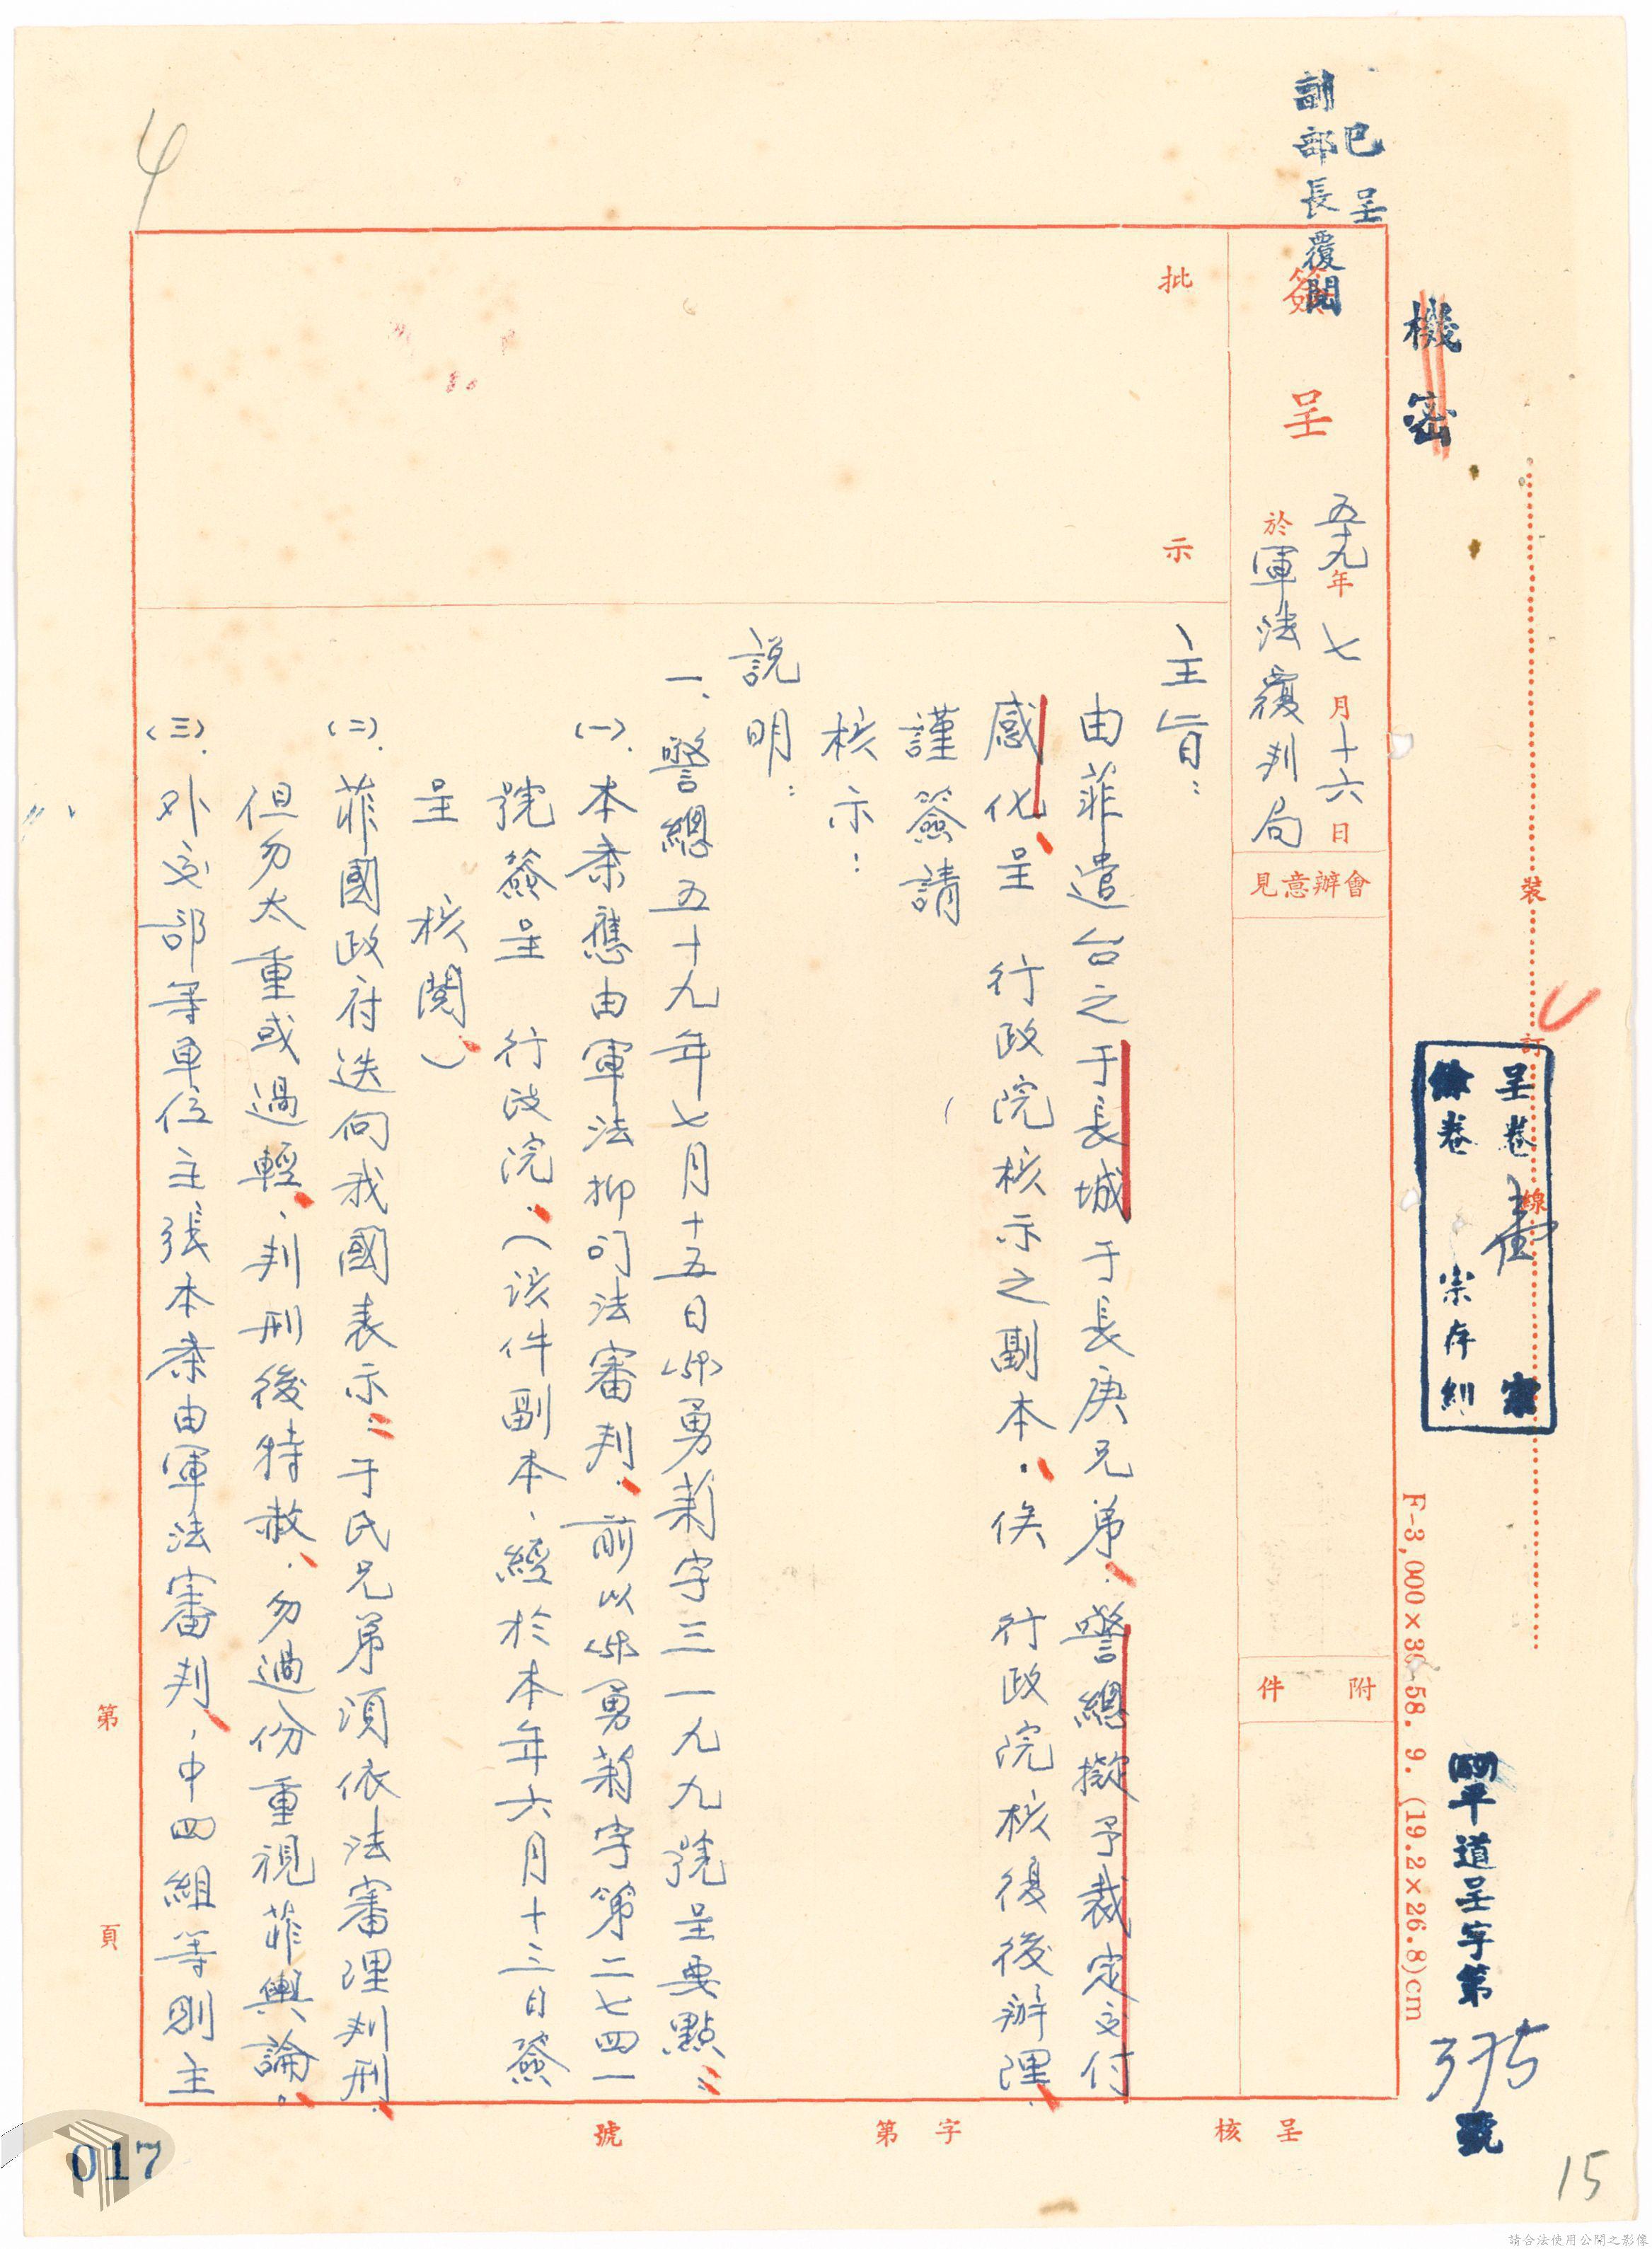 已呈
副部長覆閱
機密
簽呈
五十九年七月十六日
於軍法覆判局
會辦意見
附件
批示
主旨：
由菲遣台之于長城于長庚兄弟，警總擬予裁定交付
感化，呈 行政院核示之副本，俟 行政院核復後辦理，
謹簽請
核示：
說明：
一、警總五十九年七月十五日 勇莉字三一九九號呈要點：
(一)、本案應由軍法抑司法審判，前以 勇莉字第二七四一
號簽呈 行政院。（該件副本、經於本年六月十三日簽
呈 核閱。）
(二)、菲國政府迭向我國表示：于氏兄弟須依法審理判刑，
但勿太重或過輕、判刑後特赦，勿過份重視菲輿論。
(三)、外交部等單位主張本案由軍法審判，中四組等則主
裝
訂
線
呈卷 壹 宗
餘卷 宗存
F-3,000×36 58. 9. (19.2×26.8)cm
平道呈字第
號
呈核
字第
號
第
頁
4
15
017
請合法使用公開之影像